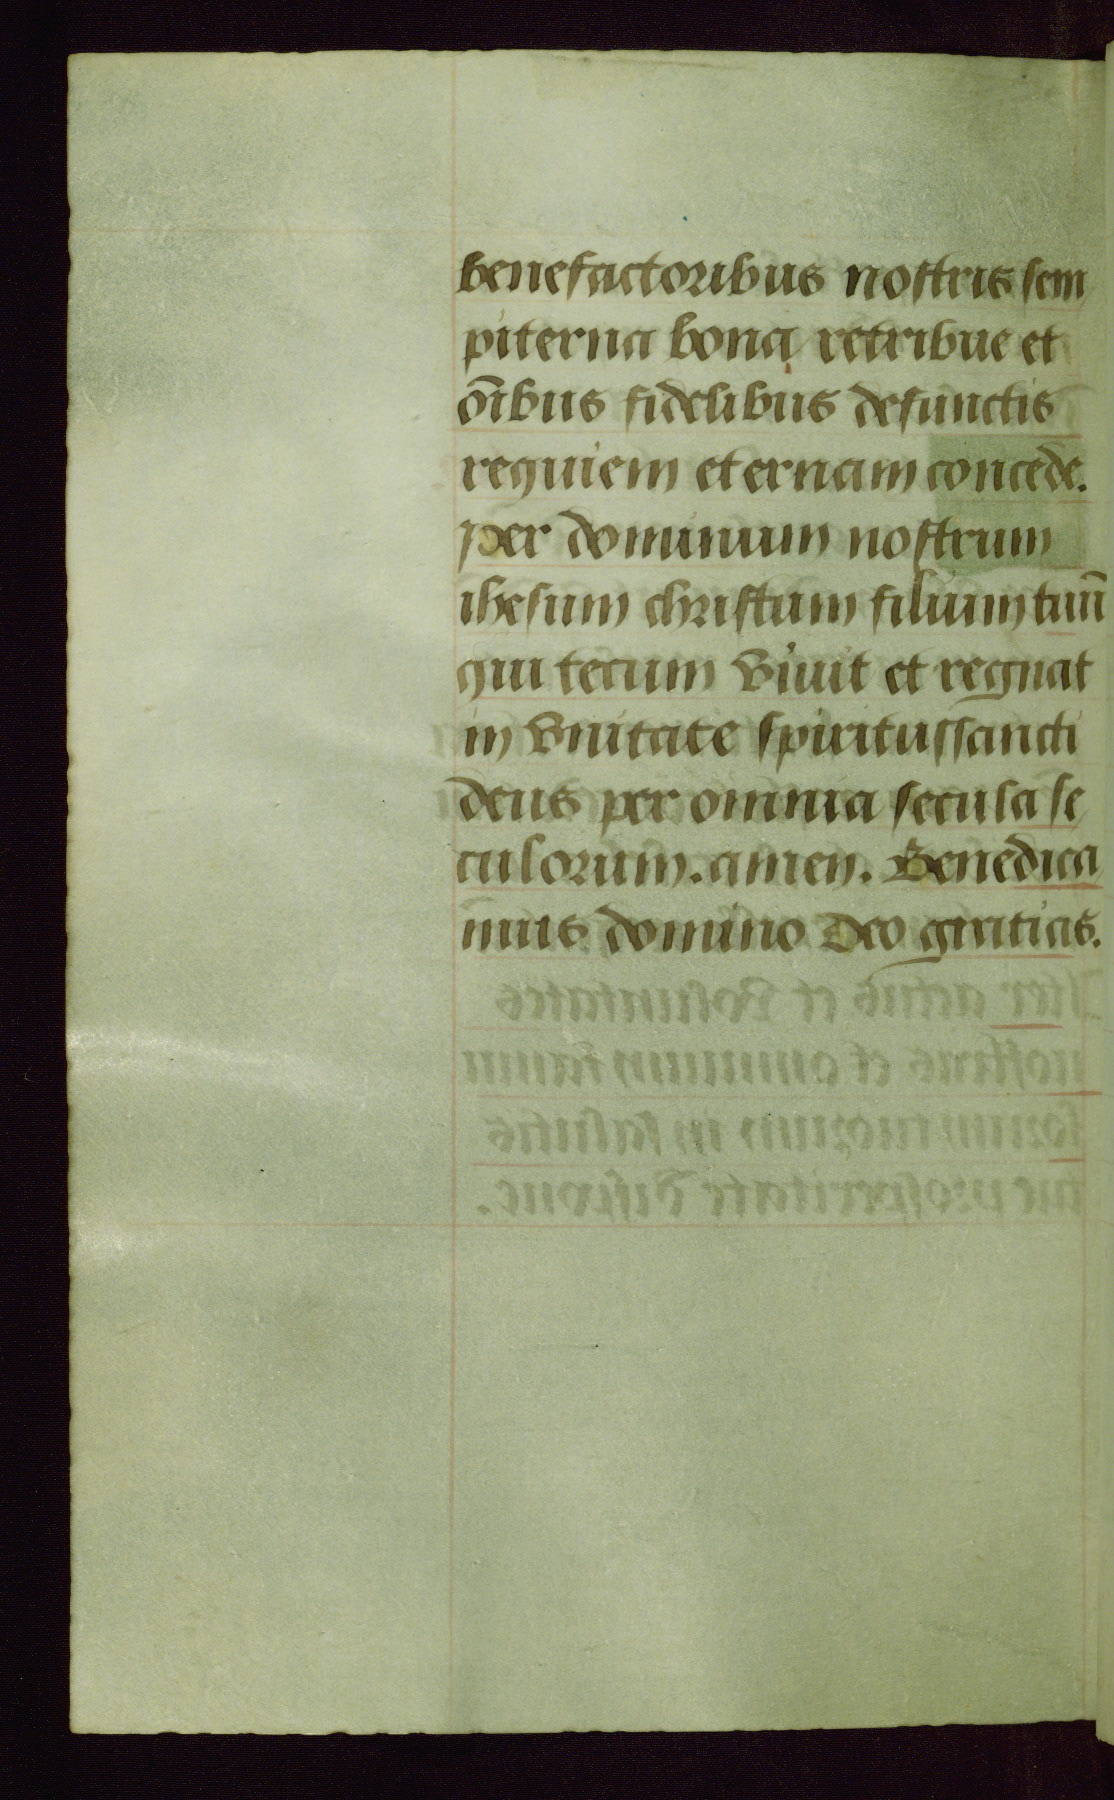 benefactoribus nostris sem
piterna bona retribue et
oībus fidelibus defunctis
requiem eternam concede.
Per dominum nostrum
ihesum christum filium tuū
qui tecum viuit et regnat
in vnitate spiritussancti
deus per omnia secula se
culorum. amen. Benedica
mus domino Deo gratias.